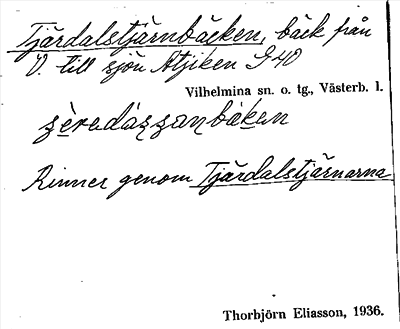 Tjärdalstjärnbäcken, bäck från
V. till sjön Atjiken G 40
Vilhelmina sn. o. tg., Västerb. l.
Rinner genom Tjärdalstjärnarna
Thorbjörn Eliasson, 1936.